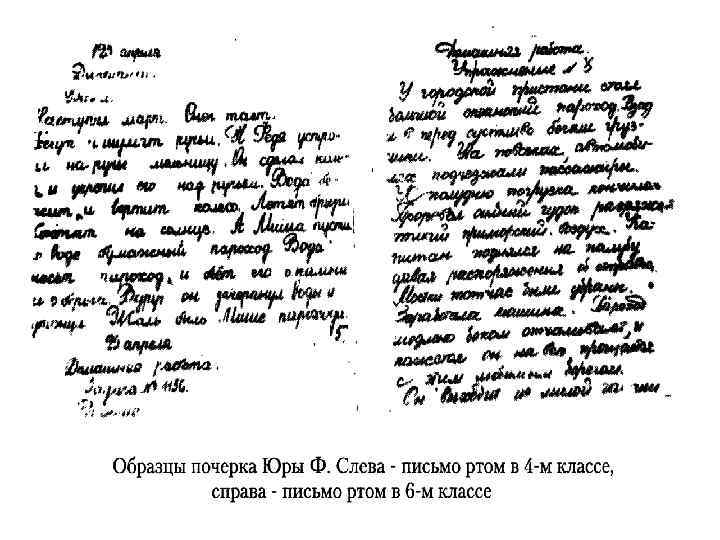 12 апреля
Диктант.
Наступил март. Снег тает.
Бегут и шумят ручьи. А Федя устро-
и на ручье мельницу. Он сделал
и укрепил его над ручьем. Вода бе-
жит и вертит колесо. Летят брызги
Блестят на солнце. А Миша пустил
в воде бумажный пароход Вода
несет пароход, и бьёт его о камни
и о берега. Вдруг он зачерпнул воды и
Жаль было Мише пароход.
5
апреля
Домашняя работа.
Задача № 1196.
Домашняя работа.
Упражнение №
У городской пристани стоял
большой океанский пароход. Взад
и в перед суетливо бегали груз-
чики. На повозках, автомоби-
лях подъезжали пассажиры.
К полудню погрузка кончилась
сиплый гудок
тихий приморский воздух. Ка-
питан поднялся на палубу
давая распоряжения о отправке
Мостки тотчас были убраны.
Заработала машина. Пароход
медленно боком отчаливает, и
он на век прощается
с этим любимым берегом.
Он выходит
Образцы почерка Юры Ф. Слева - письмо ртом в 4-м классе,
справа - письмо ртом в 6-м классе